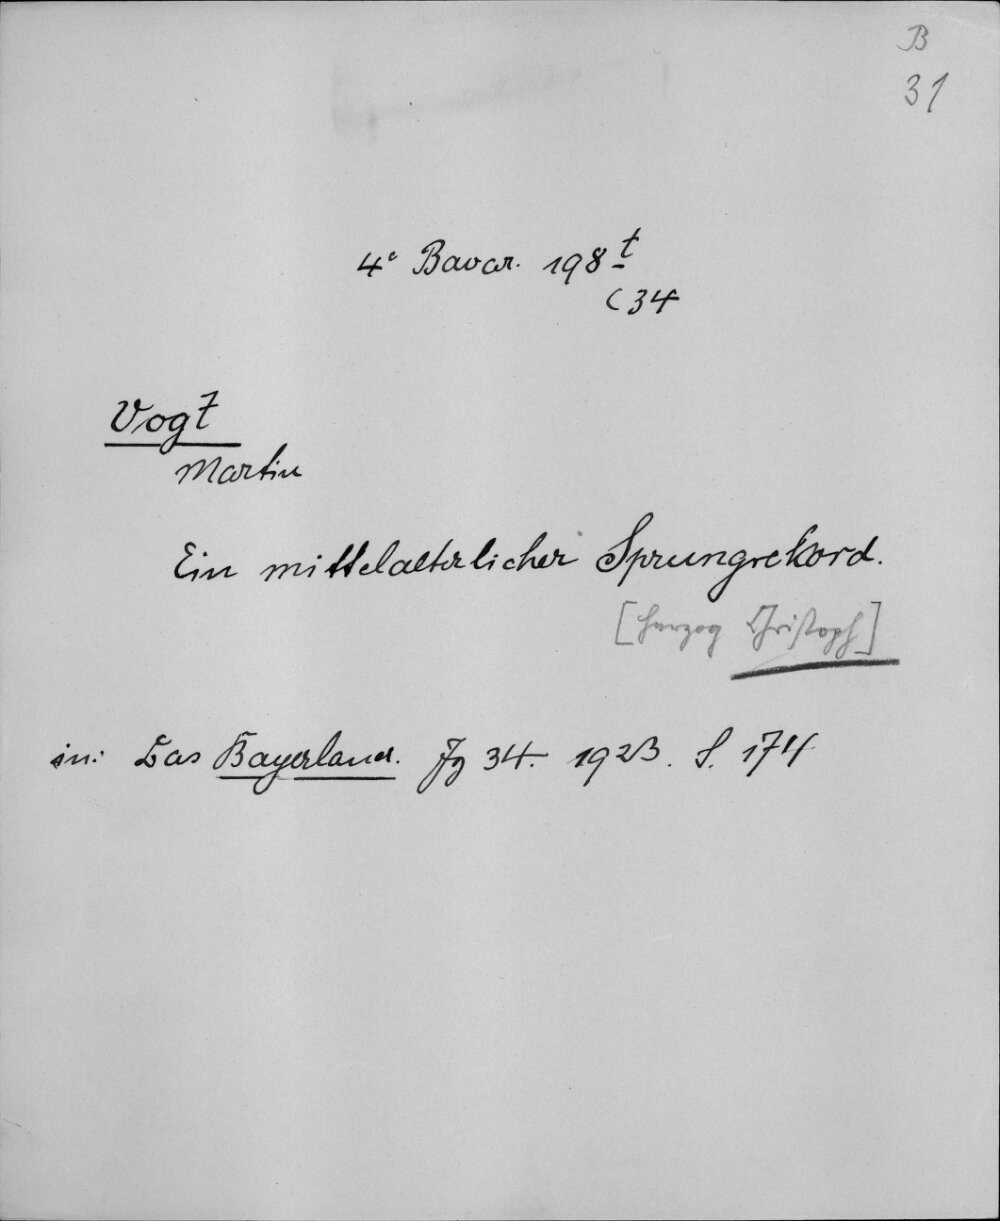 B
31
4° Bavar. 198 t
(34
Vogt
Martin
Ein mittelalterlicher Sprungrekord.
[Herzog Christoph]
in: Das Bayerland. Jg 34. 1923. S. 174